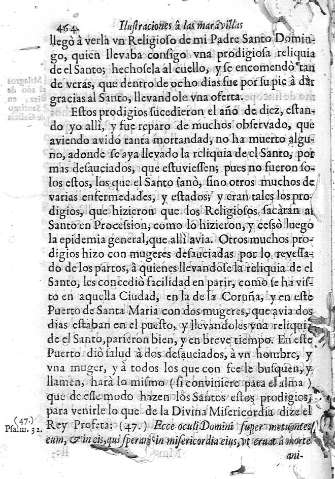 464. Ilustraciones à las maravillas
llegò à verla vn Religioso de mi Padre Santo Domin-
go, quien llevaba consigo vna prodigiosa reliquia
de el Santo; hechosela al cuello, y se encomendò tan
de veras, que dentro de ocho dias fue por su pie à dàr
gracias al Santo, llevandole vna oferta.
Estos prodigios sucedieron el año de diez, estan-
do yo allí, y fue reparo de muchos observado, que
aviendo avido tanta mortandad, no ha muerto algu-
no, adonde se aya llevado la reliquia de el Santo, por
mas desauciados, que estuviessen; pues no fueron so-
los estos, los que el Santo sanò, sino otros muchos de
varias enfermedades, y estados; y eran tales los pro-
digios, que hizieron que los Religiosos sacaran al
Santo en Procession, como lo hizieron, y cessò luego
la epidemia general, que allì avia. Otros muchos pro-
digios hizo con mugeres desauciadas por lo revessa-
do de los partos, à quienes llevandose la reliquia de el
Santo, les concediò facilidad en parir, como se ha vis-
to en aquella Ciudad, en la de la Coruña, y en este
Puerto de Santa Maria con dos mugeres, que avia dos
dias estaban en el puesto, y llevandoles vna reliquia
de el Santo, parieron bien, y en breve tiempo. En este
Puerto diò salud à dos desauciados, à vn hombre, y
vna muger, y à todos los que con fee le busquen, y
llamen, harà lo mismo (si conviniere para el alma)
que de esse modo hazen los Santos estos prodigios,
para venirle lo que de la Divina Misericordia dize el
Rey Profeta: (47.) Ecce oculi Domini super metuentes
eum, & in eis, qui sperant in misericordia eius, vt eruat à morte
ani-
(47.)
Psalm. 32.